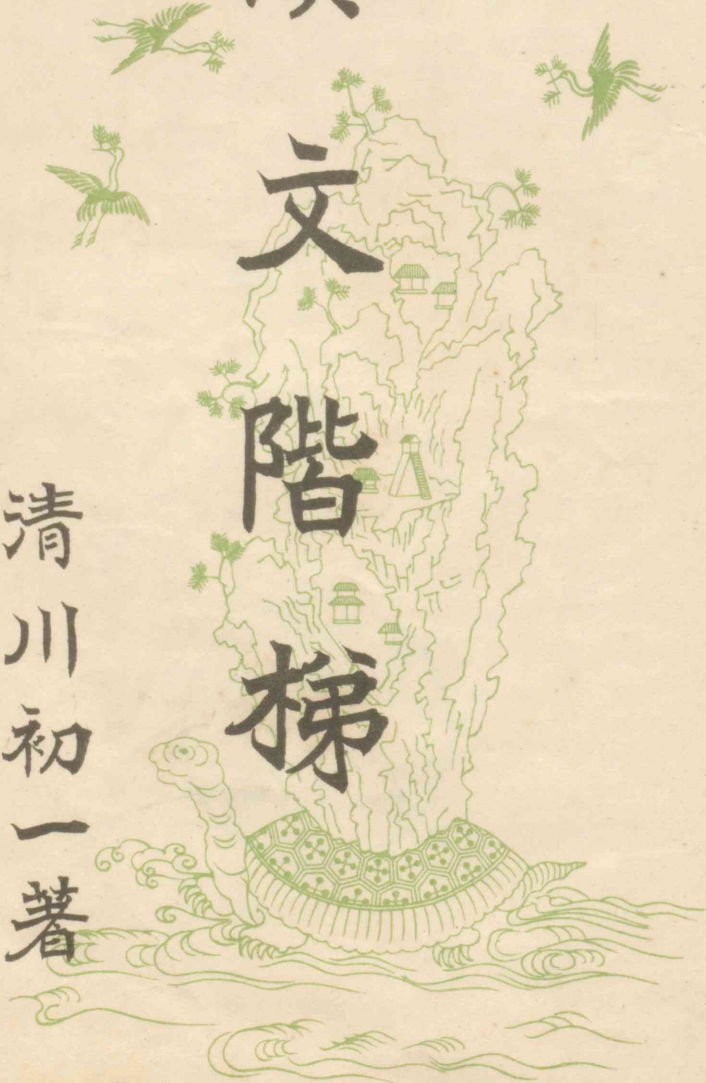 文階梯
清川初一著